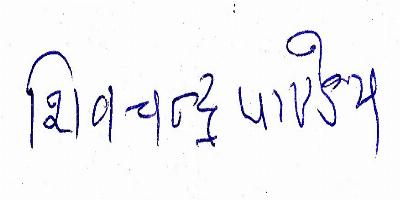 शिवचन्द्र पाण्डेय